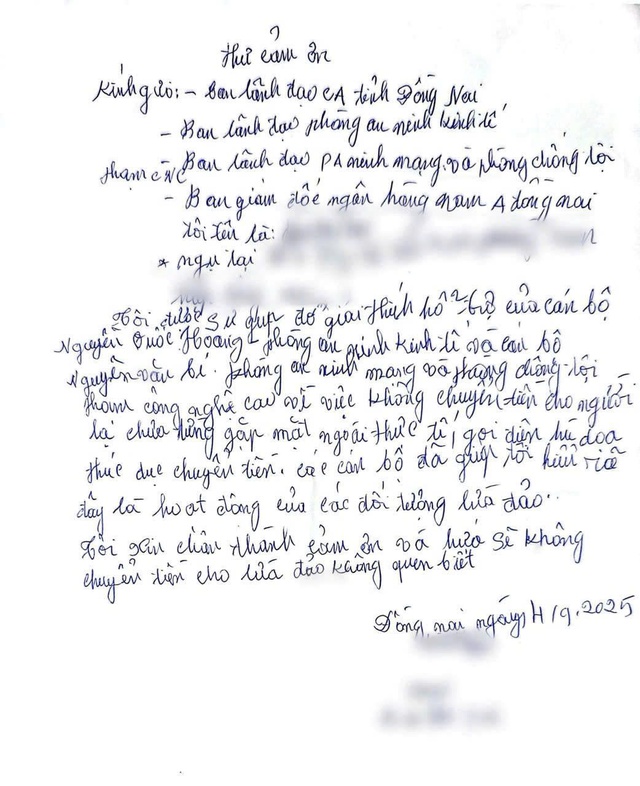 Thư cảm ơn
Kính gửi: - Ban lãnh đạo CA tỉnh Đồng Nai
- Ban lãnh đạo phòng an ninh kinh tế
- Ban lãnh đạo PA ninh mạng và phòng chống tội
phạm CNC
- Ban giám đốc ngân hàng nam A đồng nai
tôi tên là:
* ngụ tại
Tôi được sự giúp đỡ giải thích hỗ trợ của cán bộ
Nguyễn Quốc Hoàng phòng an ninh kinh tế và cán bộ
Nguyễn văn bí. phòng an ninh mạng và phòng chống tội
phạm công nghệ cao về việc không chuyển tiền cho người
lạ chưa từng gặp mặt ngoài thực tế, gọi điện hù doa
thúc dục chuyển tiền. các cán bộ đã giúp tôi hiểu
đây là hoạt động của các đối tượng lừa đảo.
Tôi xin chân thành cảm ơn và hứa sẽ không
chuyển tiền cho lừa đảo không quen biết
Đồng nai ngày 4/9.2025